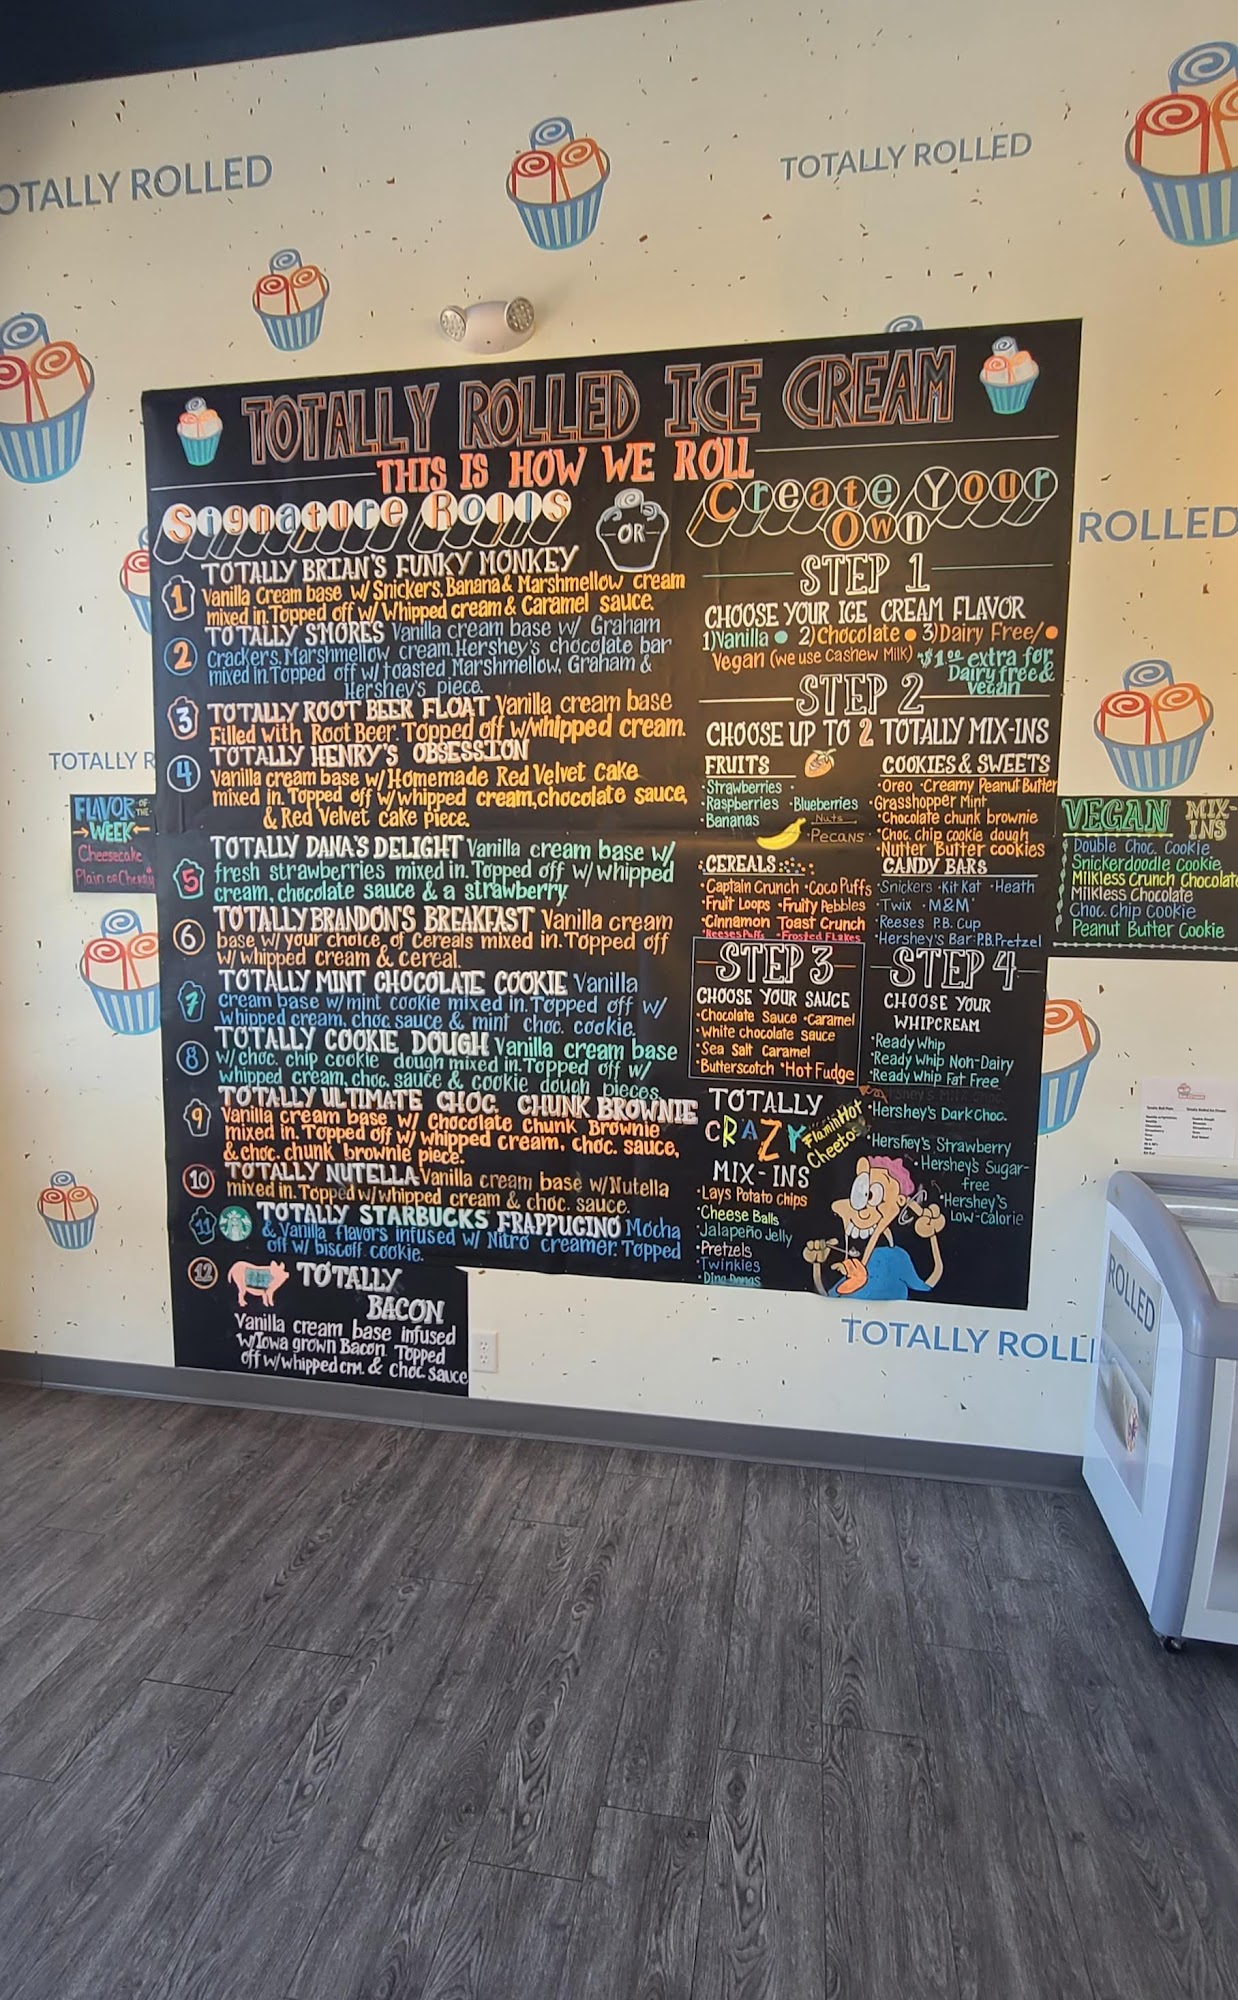 OTALLY ROLLED
TOTALLY ROLLED
TOTALLY ROLLED ICE CREAM
THIS IS HOW WE ROLL
Signature Rolls
OR
1
TOTALLY BRIAN'S FUNKY MONKEY
Vanilla Cream base w/ Snickers, Banana & Marshmellow cream
mixed in. Topped off w/ Whipped cream & Caramel sauce.
2
TOTALLY SMORES Vanilla cream base w/ Graham
Crackers, Marshmellow cream, Hershey's chocolate bar
mixed in. Topped off w/ toasted Marshmellow, Graham &
Hershey's piece.
3
TOTALLY ROOT BEER FLOAT Vanilla cream base
Filled with Root Beer. Topped off w/whipped cream.
4
TOTALLY HENRY'S OBSESSION
Vanilla cream base w/Homemade Red Velvet Cake
mixed in. Topped off w/whipped cream, chocolate sauce,
& Red Velvet cake piece.
5
TOTALLY DANA'S DELIGHT Vanilla cream base w/
fresh strawberries mixed in. Topped off w/ whipped
cream, chocolate sauce & a strawberry.
6
TOTALLY BRANDON'S BREAKFAST Vanilla cream
base w/ your choice of Cereals mixed in. Topped off
w/ whipped cream & cereal.
7
TOTALLY MINT CHOCOLATE COOKIE Vanilla
cream base w/mint cookie mixed in. Topped off w/
whipped cream, choc sauce & mint choc. cookie.
8
TOTALLY COOKIE DOUGH Vanilla cream base
w/choc. chip cookie dough mixed in. Topped off w/
whipped cream, choc. sauce & cookie dough pieces.
9
TOTALLY ULTIMATE CHOC. CHUNK BROWNIE
Vanilla cream base w/ Chocolate Chunk Brownie
mixed in. Topped off w/ whipped cream, choc. sauce,
& choc. chunk brownie piece.
10
TOTALLY NUTELLA Vanilla cream base w/Nutella
mixed in. Topped w/whipped cream & choc. sauce.
11
TOTALLY STARBUCKS FRAPPUCINO Mocha
& Vanilla flavors infused w/ Nitro creamer. Topped
off w/ biscoff cookie.
12
TOTALLY
BACON
Vanilla cream base infused
w/Iowa grown Bacon. Topped
off w/whipped crm. & Choc. sauce
Create Your
Own
STEP 1
CHOOSE YOUR ICE CREAM FLAVOR
1) Vanilla 2) Chocolate 3) Dairy Free/
Vegan (we use Cashew Milk) $1.00 extra for
Dairy free &
vegan
STEP 2
CHOOSE UP TO 2 TOTALLY MIX-INS
FRUITS
·Strawberries
·Raspberries ·Blueberries
·Bananas
Nuts
Pecans
COOKIES & SWEETS
·Oreo ·Creamy Peanut Butter
·Grasshopper Mint
·Chocolate chunk brownie
·Choc. chip cookie dough
·Nutter Butter cookies
CEREALS
·Captain Crunch ·Coco Puffs
·Fruit Loops ·Fruity Pebbles
·Cinnamon Toast Crunch
·Reeses Puffs ·Frosted Flakes
CANDY BARS
·Snickers ·Kit Kat ·Heath
·Twix ·M&M
·Reeses P.B. Cup
·Hershey's Bar ·P.B. Pretzel
STEP 3
CHOOSE YOUR SAUCE
·Chocolate Sauce ·Caramel
·White chocolate sauce
·Sea Salt Caramel
·Butterscotch ·Hot Fudge
STEP 4
CHOOSE YOUR
WHIPCREAM
·Ready Whip
·Ready Whip Non-Dairy
·Ready Whip Fat Free
·Hershey's Dark Choc.
·Hershey's Strawberry
·Hershey's Sugar-
free
·Hershey's
Low-Calorie
TOTALLY
CRAZY
MIX-INS
Flamin Hot
Cheetos
·Lays Potato Chips
·Cheese Balls
·Jalapeño Jelly
·Pretzels
·Twinkies
·Ding Dongs
FLAVOR OF THE
WEEK
Cheesecake
Plain or Cherry
VEGAN MIX-
INS
Double Choc. Cookie
Snickerdoodle Cookie
Milkless Crunch Chocolate
Milkless Chocolate
Choc. chip Cookie
Peanut Butter Cookie
ROLLED
TOTALLY R
TOTALLY ROLL
ROLLED